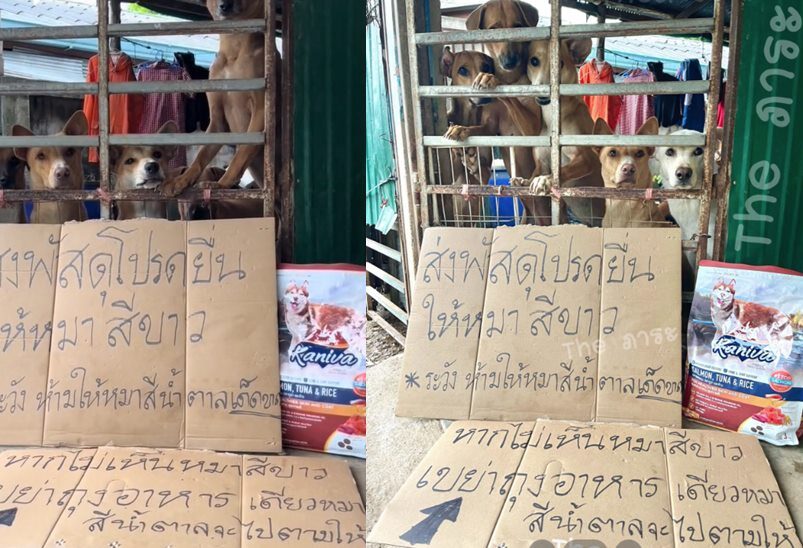 ส่งพัสดุโปรดยื่น
ให้หมา สีขาว
ระวัง ห้ามให้หมาสีน้ำตาลเด็ดขาด
Kaniva
SALMON, TUNA & RICE
หากไม่เห็นหมาสีขาว
เขย่าถุงอาหาร เดี๋ยวหมา
สีน้ำตาลจะไปตามให้
The ภาระ
ส่งพัสดุโปรดยื่น
ให้หมา สีขาว
The ภาระ
* ระวัง ห้ามให้หมาสีน้ำตาลเด็ดขาด
Kaniva
SALMON, TUNA & RICE
หากไม่เห็นหมาสีขาว
เขย่าถุงอาหาร เดี๋ยวหมา
สีน้ำตาลจะไปตามให้